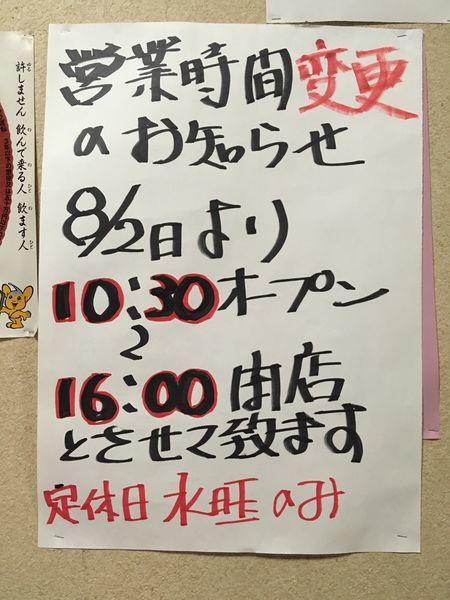 営業時間変更
のお知らせ
8/2日より
10:30オープン
〜
16:00閉店
とさせて致ます
定休日 水旺のみ
許しません 飲んで乗る人 飲ます人